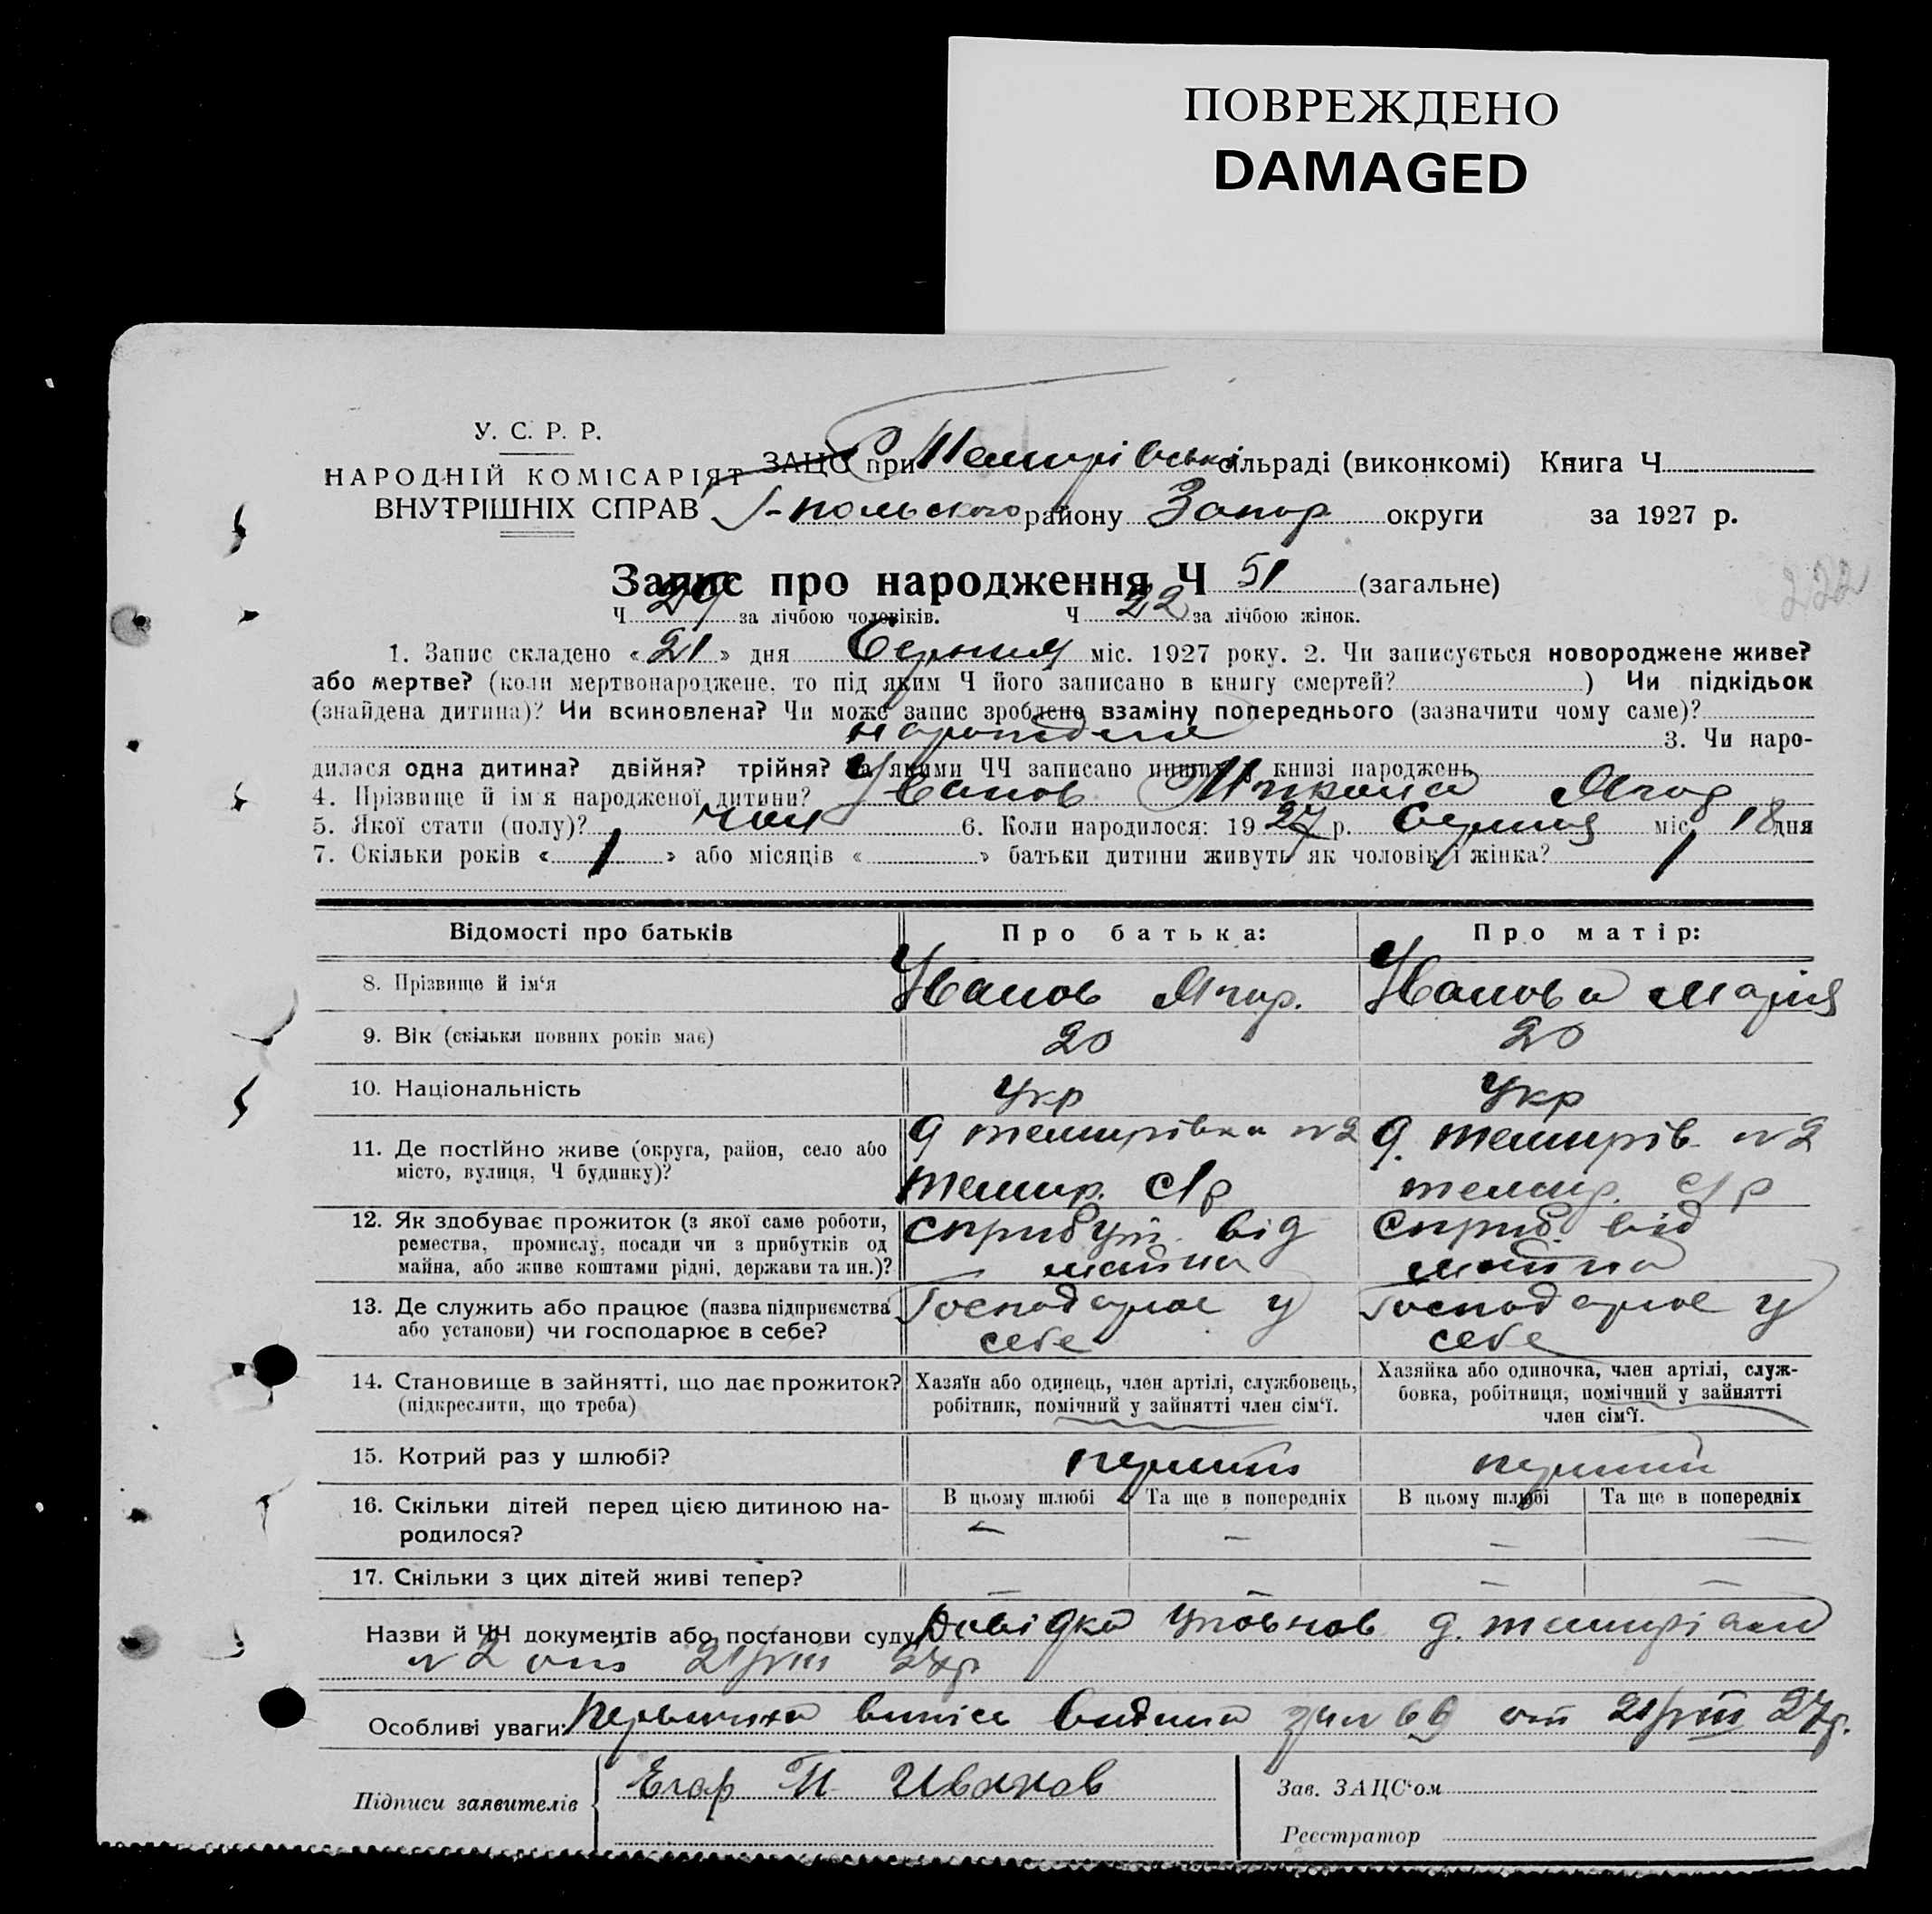 ПОВРЕЖДЕНО
DAMAGED
У. С. Р. Р.
НАРОДНІЙ КОМІСАРІЯТ
ВНУТРІШНІХ СПРАВ
ЗАЦС при Темирівській сільраді (виконкомі) Книга Ч.
Г-польского району Запор округи за 1927 р.
222
Запис про народження Ч 51 (загальне)
Ч 29 за лічбою чоловіків. Ч 22 за лічбою жінок.
1. Запис складено «21» дня Серпня міс. 1927 року. 2. Чи записується новороджене живе?
або мертве? (коли мертвонароджене, то під яким Ч його записано в книгу смертей? ) Чи підкідьок
(знайдена дитина)? Чи всиновлена? Чи може запис зроблено взаміну попереднього (зазначити чому саме)?
3. Чи наро-
дилася одна дитина? двійня? трійня? За якими ЧЧ записано инших у книзі народжень
4. Прізвище й ім'я народженої дитини? Іванов Микола
5. Якої стати (полу)? чол 6. Коли народилося: 1927 р. Серпня міс. 18 дня
7. Скільки років « 1 » або місяців « » батьки дитини живуть як чоловік і жінка? 1
Відомості про батьків Про батька: Про матір:
8. Прізвище й ім'я Іванов Іванова Марія
9. Вік (скільки повних років має) 20 20
10. Національність Укр Укр
11. Де постійно живе (округа, район, село або д темирівка №2 д. темирів №2
місто, вулиця, Ч будинку)? темир. с/р темир. с/р
12. Як здобуває прожиток (з якої саме роботи, від від
ремества, промислу, посади чи з прибутків од
майна, або живе коштами рідні, держави та ин.)? майна майна
13. Де служить або працює (назва підприємства Господарює у Господарює у
або установи) чи господарює в себе? себе себе
14. Становище в зайнятті, що дає прожиток? Хазяїн або одинець, член артілі, службовець, Хазяйка або одиночка, член артілі, служ-
(підкреслити, що треба) робітник, помічний у зайнятті член сім'ї. бовка, робітниця, помічний у зайнятті
член сім'ї.
15. Котрий раз у шлюбі? перший перший
16. Скільки дітей перед цією дитиною на- В цьому шлюбі Та ще в попередніх В цьому шлюбі Та ще в попередніх
родилося? — — — —
17. Скільки з цих дітей живі тепер? — — — —
Назви й ЧЧ документів або постанови суду Довідка уповнов д. темирівки
№2 від 21/VIII 27р
Особливі уваги: Первистна випись видана за №69 от 21/VIII 27р.
Підписи заявителів Егор И Иванов Зав. ЗАЦС'ом
Реєстратор